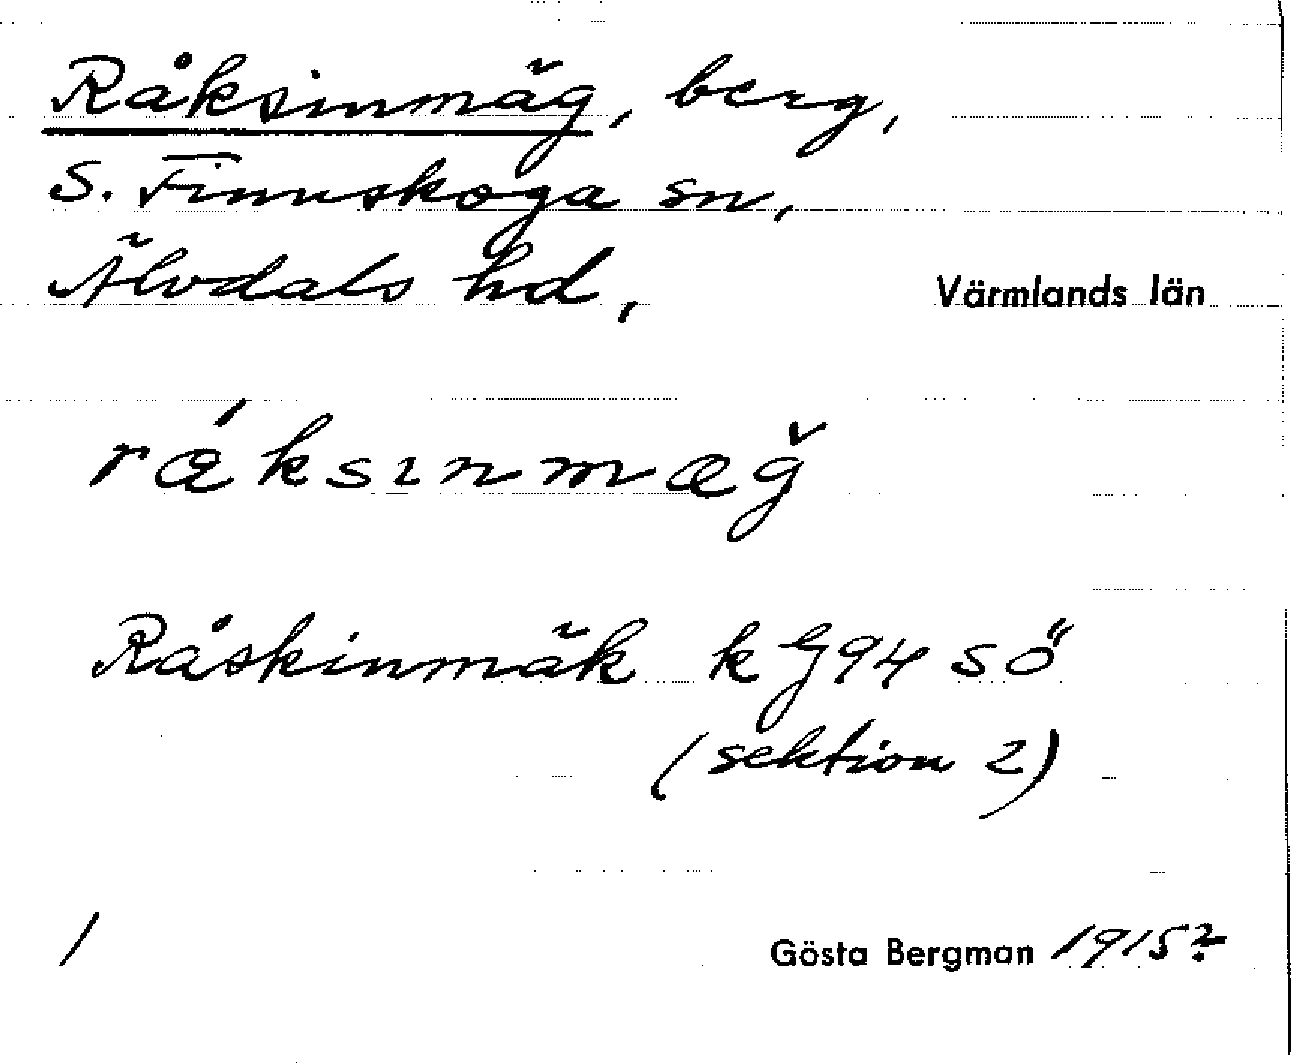 Råksinmäg, berg,
S. Finnskoga sn,
Älvdals hd, Värmlands län
ráksınmæğ
Råskinmäk kG94 SÖ
(sektion 2)
1 Gösta Bergman 1915?